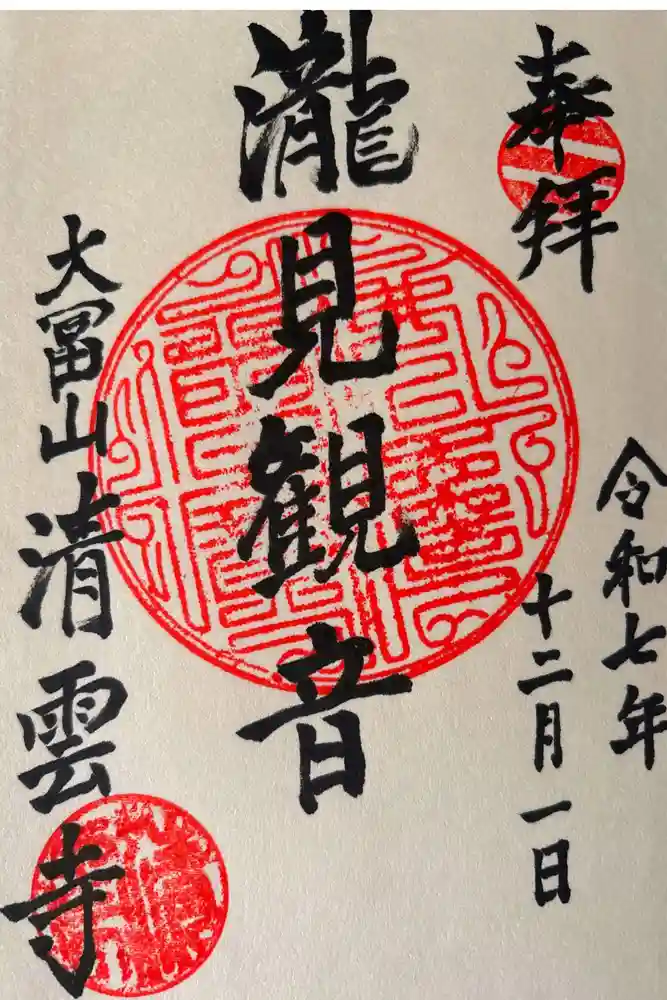 奉拝
令和七年
十二月一日
瀧見観音
大冨山清雲寺